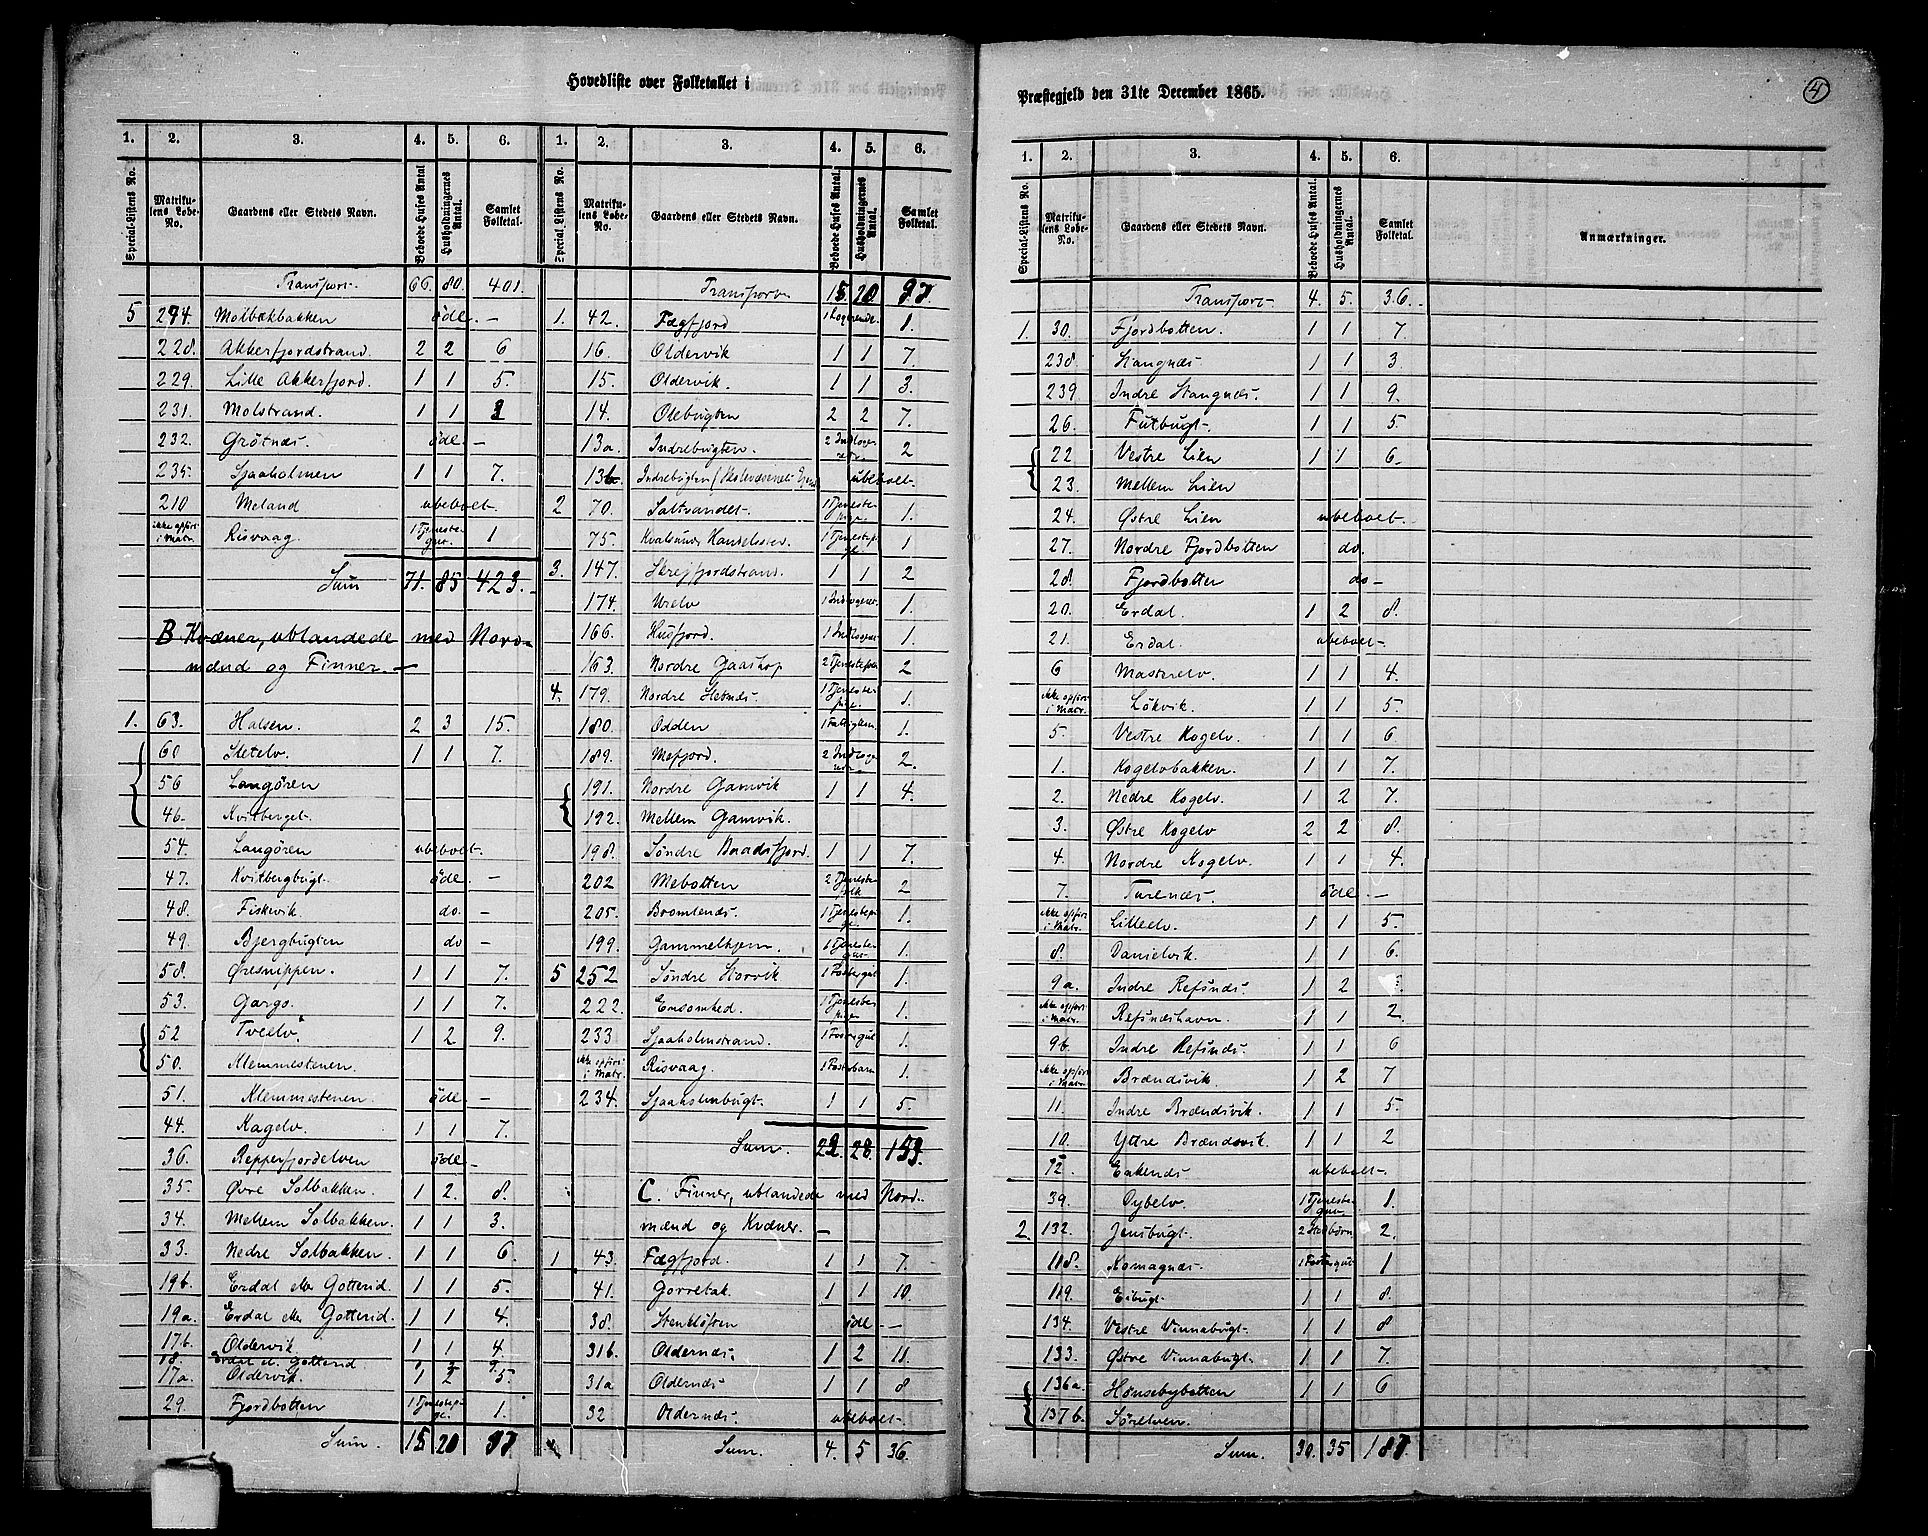 Hovedliste over Folketallet i
Præstegjeld den 31te December 1865.
4
1. 2. 3. 4. 5. 6.
Special-Listens No. Matriku-lens Løbe-No. Gaardens eller Stedets Navn. Beboede Huses Antal Husholdningernes Antal. Samlet Folketal.
Transport 66. 80. 401.
5 294. Molbækbakken öde. –
228. Akkerfjordstrand. 2 2 6
229. Lille Akkerfjord. 1 1 5.
231. Molstrand. 1 1 3
232. Grötnæs. öde. –
235. Sjaaholmen 1 1 7.
210 Meland ubeboet.
ikke opfört i Matr. Risvaag 1 Tjeneste-gut. 1
Sum 71. 85 423.
B Kvæner, ublandede med Nord-
mænd og Finner. –
1. 63. Halsen. 2 3 15.
60 Stetelv. 1 1 7.
56 Langören
46. Kvitberget.
54. Langören ubeboet.
47. Kvitbergbugt. öde. –
48. Fiskevik. do. –
49. Bjergbugten do –
58. Øresnippen. 1 1 7.
53. Gargo. 1 1 7.
52 Tveelv 1 2 9.
50. Klemmestenen.
51. Klemmestenen öde. –
44. Kagelv 1 1 7.
36. Repperfjordelven öde –
35. Øvre Solbakken. 1 2. 8.
34. Mellem Solbakken. 1 1 3.
33. Nedre Solbakken. 1 1 6.
19b. Erdal eller Gotterid. 1 1 5.
19a. Erdal eller Gotterid. 1 1 4.
17b. Oldervik. 1 1 4.
18. Erdal el. Gotterid
17a. Oldervik. 1 2 5.
29. Fjordbotten 1 Tjenestepige. 1.
Sum. 15 20 97
1. 2. 3. 4. 5. 6.
Special Listens No. Matriku-lens Løbe-No. Gaardens eller Stedets Navn. Beboede Huses Antal. Husholdningernes Antal. Samlet Folketal.
Transport 15 20 97
1. 42. Fægfjord 1 Logerende. 1.
16. Oldervik 1 1 7.
15. Oldervik. 1 1 3.
14. Olebugten 2 2 7.
13a. Indrebugten. 2 2
13b. Indrebugten ubeboet.
2 70. Saltsandet. 1 Tjeneste-pige. 1.
75. Kvalsund Handelssted. 1 Tjenestepige 1
3. 147. Skrejfjordstrand. 1 1 2
174. Urelv 1.
166. Husfjord. 1.
163. Nordre Gaashop 2 Tjenestefolk 2
4. 179. Nordre Sletnæs. 1 Tjeneste-pige. 1.
180. Odden 1.
189. Mefjord. 2.
191. Nordre Gamvik 1 1 4.
192. Mellem Gamvik.
198. Söndre Baadsfjord. 1 1 7.
202 Mebotten 2 Tjeneste-folk 2
205. Bromlenæs. 1 Tjenestepige. 1.
199. Gammelhjem. 1 Tjeneste-gut. 1.
5 252 Söndre Storvik 1 Fostergut 1.
222. Ensomhed. 1 Tjeneste-pige. 1.
233. Sjaaholmstrand. 1 Fostergut 1.
ikke opfört i Matr. Risvaag. 1 Fosterbarn 1.
234. Sjaaholmbugt. 1 1 5.
Sum. 22. 28. 153.
C. Finner, ublandede med Nord-
mænd og Kvæner. –
1 43. Fægfjord. 1 1 7.
41. Gorretak. 1 1 10.
38. Stenklöften öde –
31b. Oldernæs. 1 2 11.
31a Oldernæs. 1 1 8
32 Oldernæs. ubeboet.
Sum. 4. 5 36.
1. 2. 3. 4. 5. 6.
Special-Listens No. Matriku-lens Løbe-No. Gaardens eller Stedets Navn. Beboede Huses Antal. Husholdningernes Antal. Samlet Folketal. Anmærkninger.
Transport 4. 5. 36.
1. 30. Fjordbotten. 1 1 7.
238. Stangnæs. 1 1 3.
239 Indre Stangnæs. 1 1 9.
26. Futbugt. 1 1 5
22 Vestre Lien 1 1 6
23. Mellem Lien
24. Østre Lien ubeboet.
27. Nordre Fjordbotten do.
28. Fjordbotten do –
20. Erdal 1 2 8.
21. Erdal. ubeboet.
6 Masterelv. 1 1 4.
ikke opfört i Matr. Lökvik. 1 1 5.
5. Vestre Kogelv. 1 1 6
1. Kogelvbakken. 1 1 7.
2. Nedre Kogelv. 1 2 7.
3. Østre Kogelv 2 2 8.
4. Nordre Kogelv. 1 1 4.
7. Turenæs. öde. –
ikke opfört i Matr. Lilleelv. 1 1 5.
8. Danielvik. 1 1 6.
9a. Indre Refsnæs. 1 2
ikke opfört i Matr. Refsnæshavn. 1 1 2.
9b. Indre Refsnæs. 1 1 6
ikke opfört i Matr. Brændsvik. 1 2 7
11. Indre Brændsvik. 1 1 5.
10. Yttre Brændsvik. 1 1 2
12. Eakenæs ubeboet.
39. Dybelv. 1 Tjeneste-gut. 1.
2. 132. Jensbugt. 2 Stedbörn 2.
118. Komagnæs. 1 Fostergut 1
119. Eibugt. 1 1 8.
134. Vestre Vinnabugt. 1 1 8
133. Østre Vinnabugt. 1 1 7.
136a. Hönsebybotten 1 1 6
137b. Sörelven.
Sum. 30. 35 187